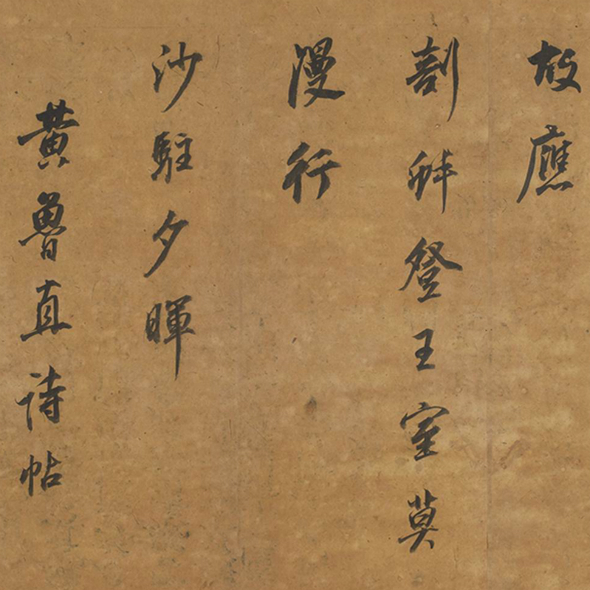 故應
剖蚌登王室莫
漫行
沙駐夕暉
黃魯直詩帖